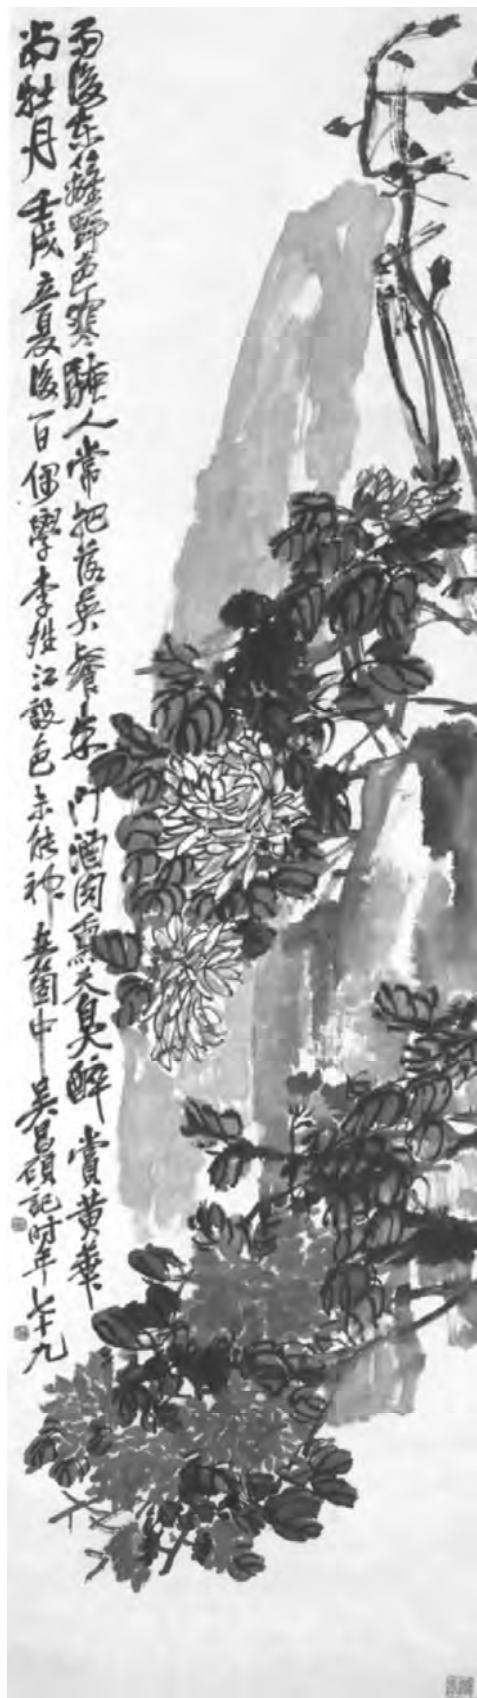 雨後東籬野色寒騷人常把落英餐朱門酒肉熏天臭醉賞黃華
當牡丹 壬戌立夏後一日偶學李晴江設色未能神在箇中 吳昌碩記時年七十九